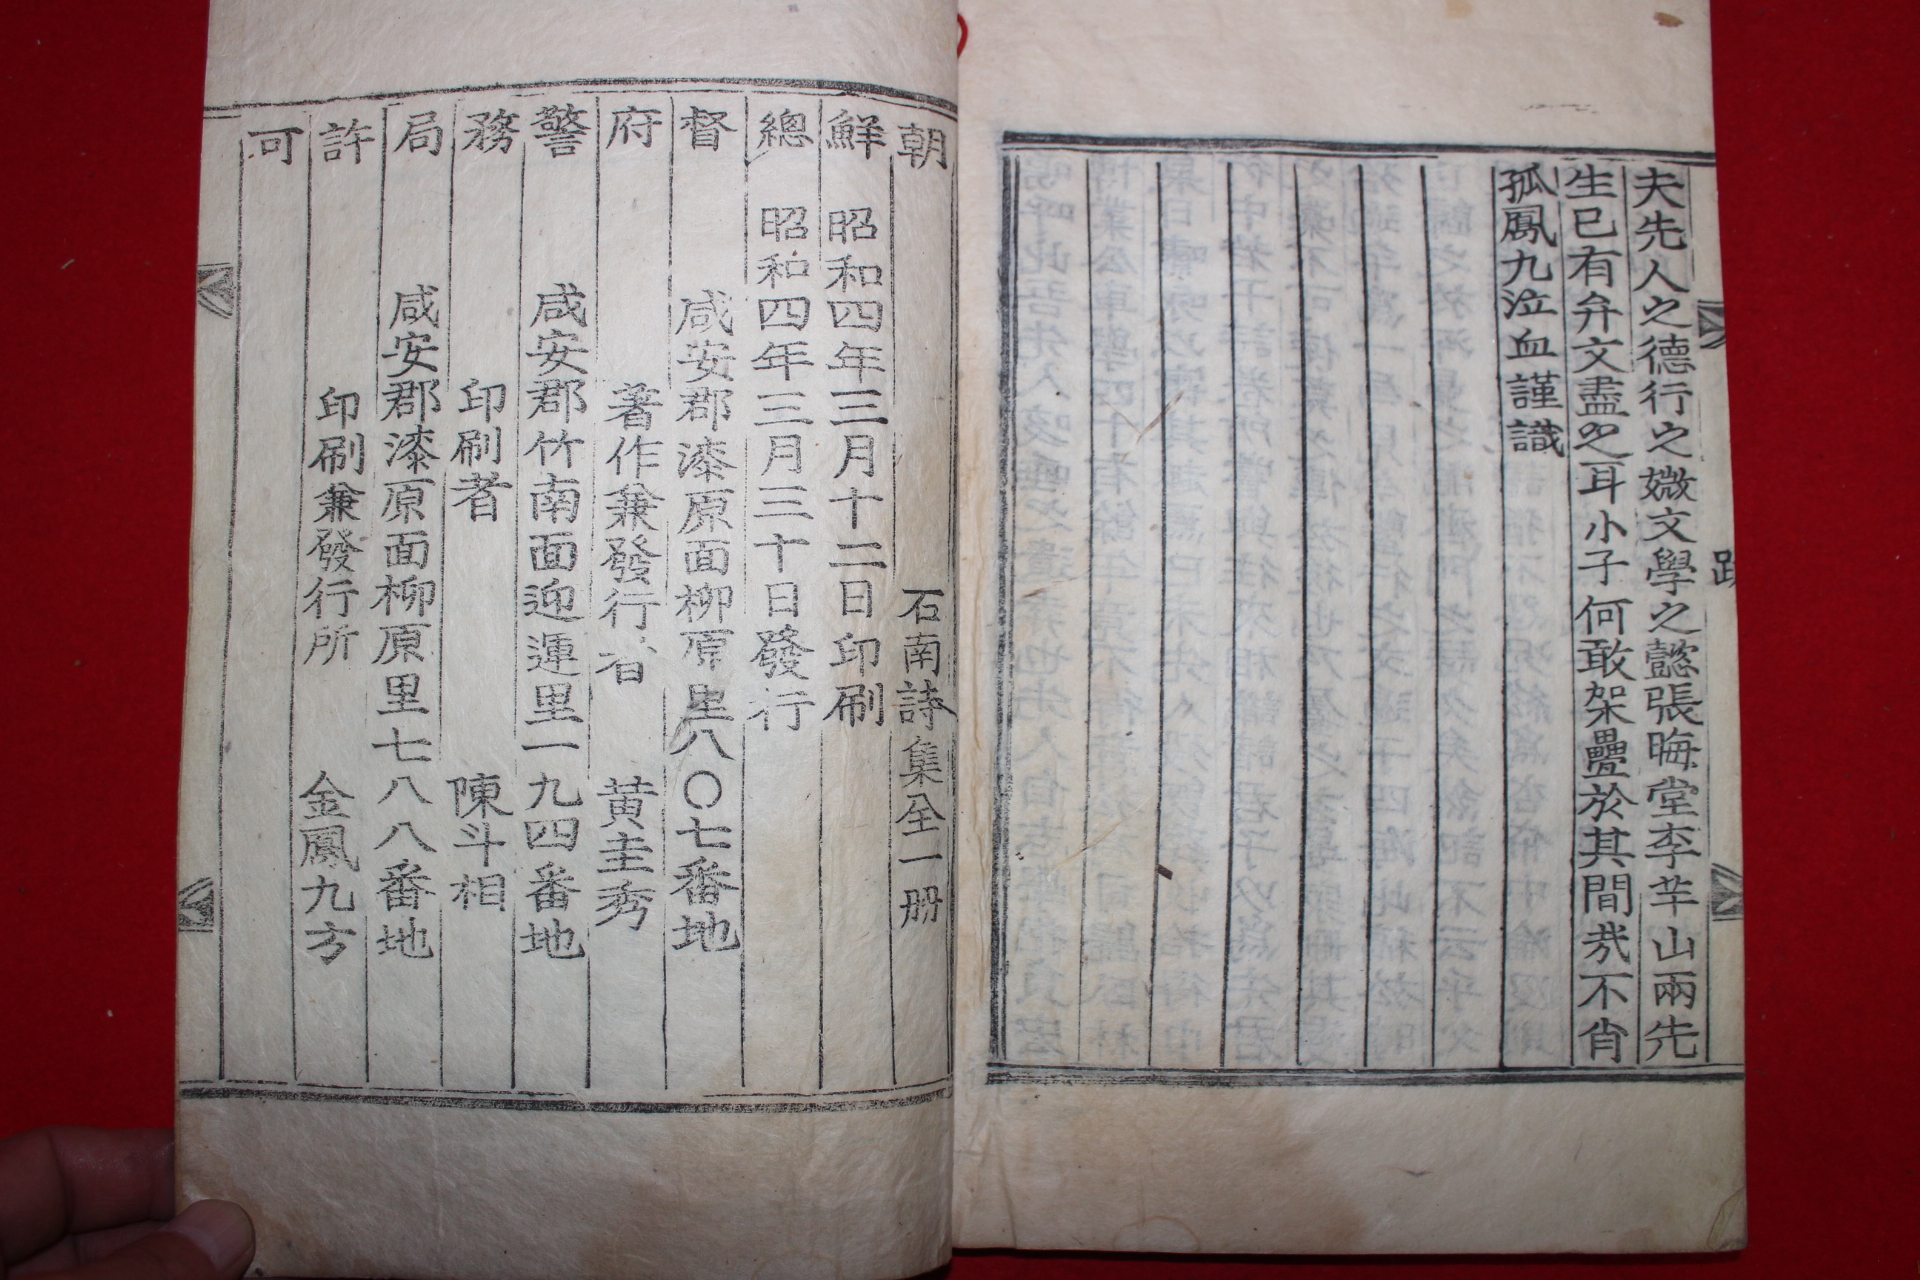 夫先人之德行之媺文學之懿張晦堂李芊山兩先
生已有弁文盡之耳小子何敢架疊於其間哉不肖
孤鳳九泣血謹識
跋
朝 石南詩集全一册
鮮 昭和四年三月十二日印刷
總 昭和四年三月三十日發行
督 咸安郡漆原面柳原里八〇七番地
府 著作兼發行者 黄圭秀
警 咸安郡竹南面迎運里一九四番地
務 印刷者 陳斗相
局 咸安郡漆原面柳原里七八八番地
許 印刷兼發行所 金鳳九方
可